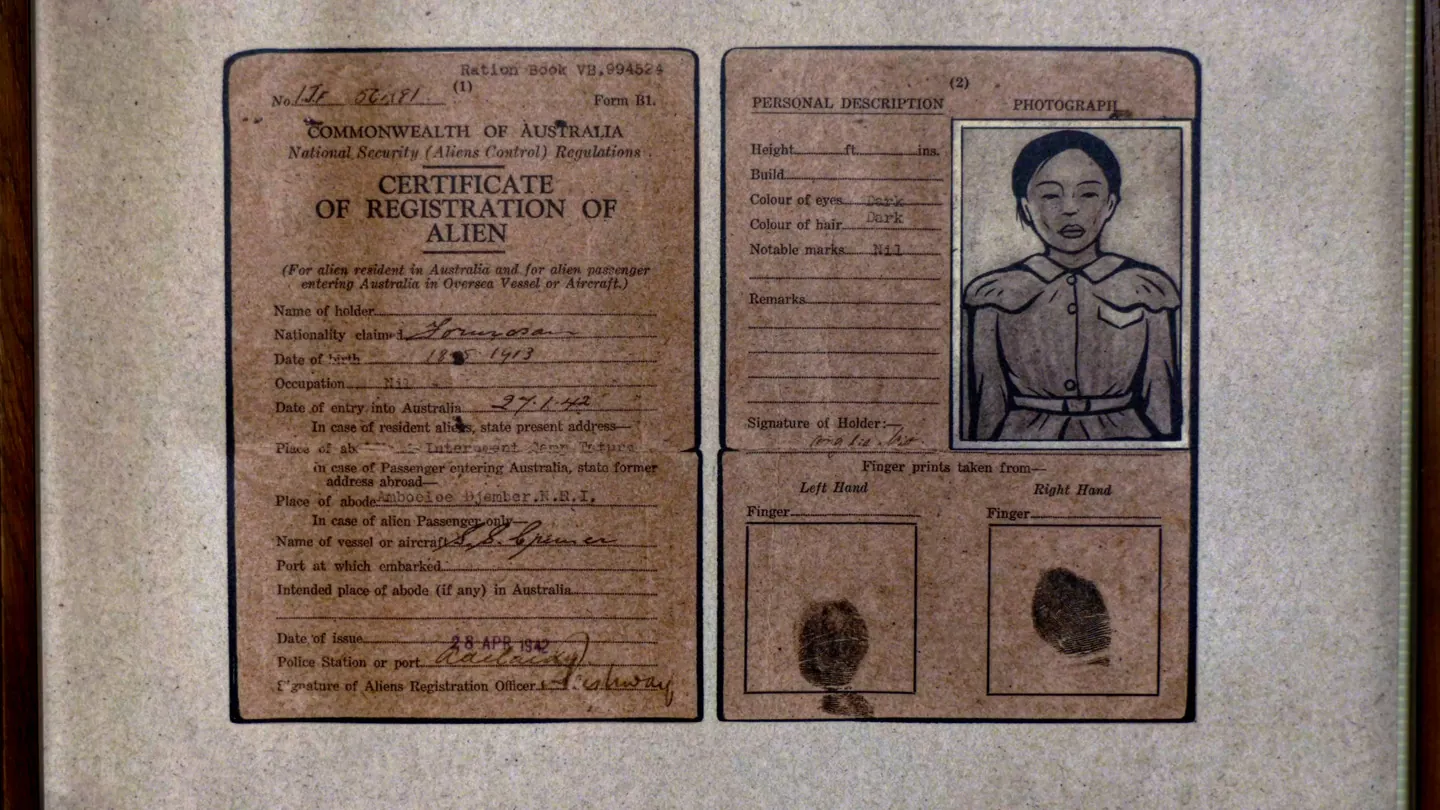 Ration Book VB.994524
(1)
No. Form B1.
COMMONWEALTH OF AUSTRALIA
National Security (Aliens Control) Regulations
CERTIFICATE
OF REGISTRATION OF
ALIEN
(For alien resident in Australia and for alien passenger
entering Australia in Oversea Vessel or Aircraft.)
Name of holder
Nationality claimed
Date of birth 1913
Occupation Nil
Date of entry into Australia 27.1.42
In case of resident aliens, state present address—
Place of Internment Camp
in case of Passenger entering Australia, state former
address abroad—
Place of abode Amboeloe Djember.N.R.I.
In case of alien Passenger only—
Name of vessel or aircraft S.S. Cremer
Port at which embarked
Intended place of abode (if any) in Australia
Date of issue 28 APR 1942
Police Station or port Adelaide
Signature of Aliens Registration Officer
(2)
PERSONAL DESCRIPTION
PHOTOGRAPH
Height ft. ins.
Build
Colour of eyes Dark
Colour of hair Dark
Notable marks Nil
Remarks
Signature of Holder:—
Finger prints taken from—
Left Hand
Right Hand
Finger
Finger